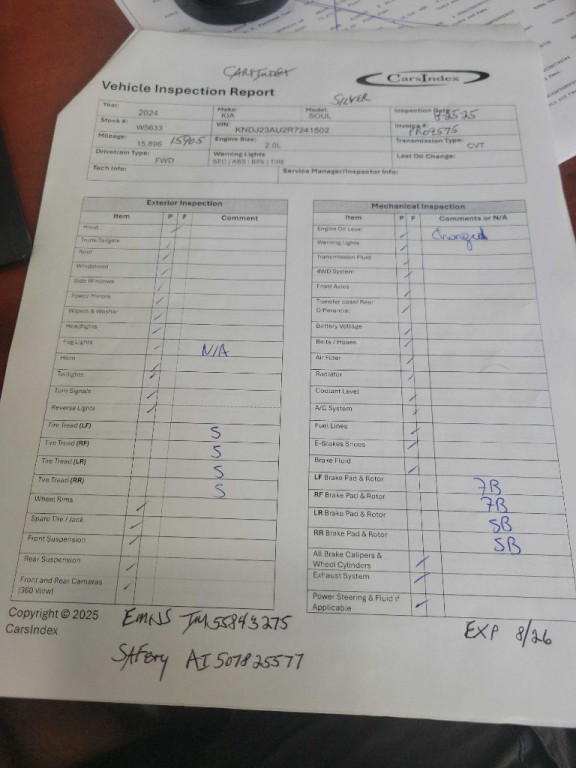 CarsIndex
Vehicle Inspection Report
SILVER
Year: 2024 Make: KIA Model: SOUL Inspection Date:
Stock #: W5633 VIN: KNDJ23AU2R7241502 Invoice #:
Mileage: 15,896 15905 Engine Size: 2.0L Transmission Type: CVT
Drivetrain Type: FWD Warning Lights Last Oil Change:
Tech Info: Service Manager/Inspector Info:
Exterior Inspection
Item P F Comment
Hood
Trunk/Tailgate
Roof
Windshield
Side Windows
Power Mirrors
Wipers & Washer
Headlights
Fog Lights N/A
Horn
Taillights
Turn Signals
Reverse Lights
Tire Tread (LF) 5
Tire Tread (RF) 5
Tire Tread (LR) 5
Tire Tread (RR) 5
Wheel Rims
Spare Tire / Jack
Front Suspension
Rear Suspension
Front and Rear Cameras
(360 View)
Mechanical Inspection
Item P F Comments or N/A
Engine Oil Level Changed
Warning Lights
Transmission Fluid
4WD System
Front Axles
Transfer case/ Rear
Differential
Battery Voltage
Belts / Hoses
Air Filter
Radiator
Coolant Level
A/C System
Fuel Lines
E-Brakes Shoes
Brake Fluid
LF Brake Pad & Rotor 7B
RF Brake Pad & Rotor 7B
LR Brake Pad & Rotor 5B
RR Brake Pad & Rotor 5B
All Brake Calipers &
Wheel Cylinders
Exhaust System
Power Steering & Fluid if
Applicable
Copyright © 2025
CarsIndex
EXP 8/26